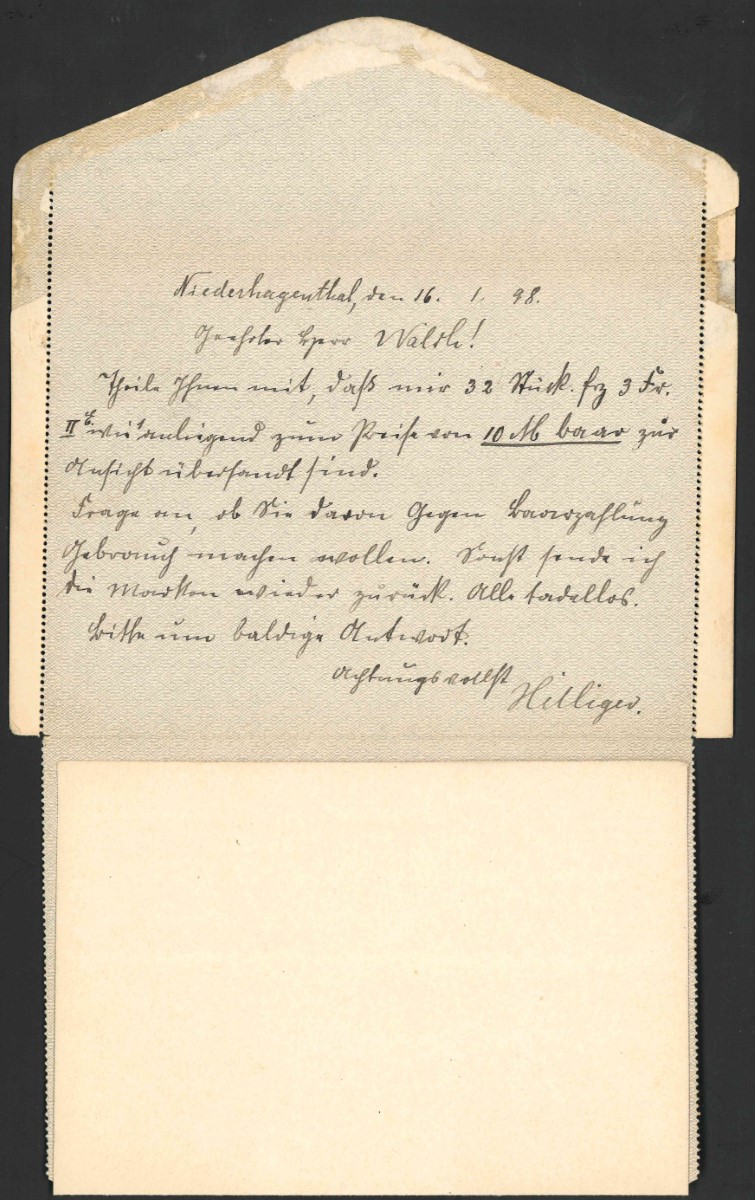 Niederhagenthal, den 16. 1. 98.
Geehrter Herr Walch!
Theile Ihnen mit, daß mir 32 Stück. frz 3 Fr.
II wie 1 anliegend zum Preise von 10 M baar zur
Ansicht übersandt sind.
Frage an, ob Sie davon Gegen Baarzahlung
Gebrauch machen wollen. Sonst sende ich
die Marken wieder zurück. Alle tadellos.
Bitte um baldige Antwort.
Achtungsvollst
Hilliger.